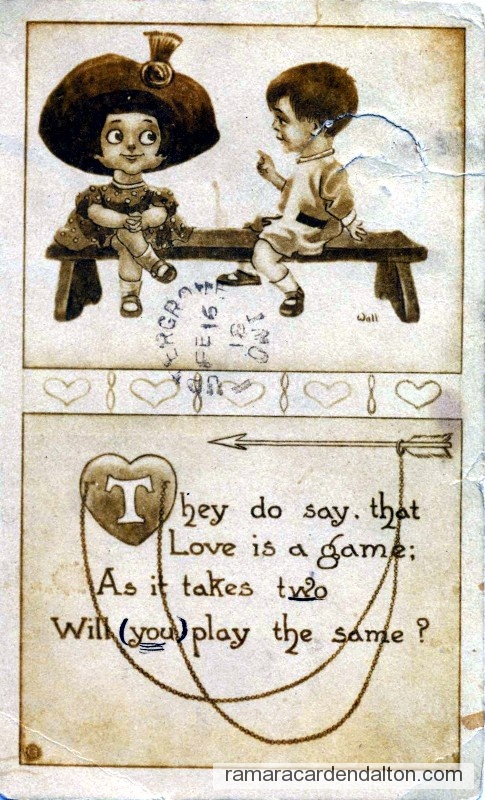 Wall
FE 16
18
ONT
They do say, that
Love is a game;
As it takes two
Will (you) play the same?
ramaracardendalton.com